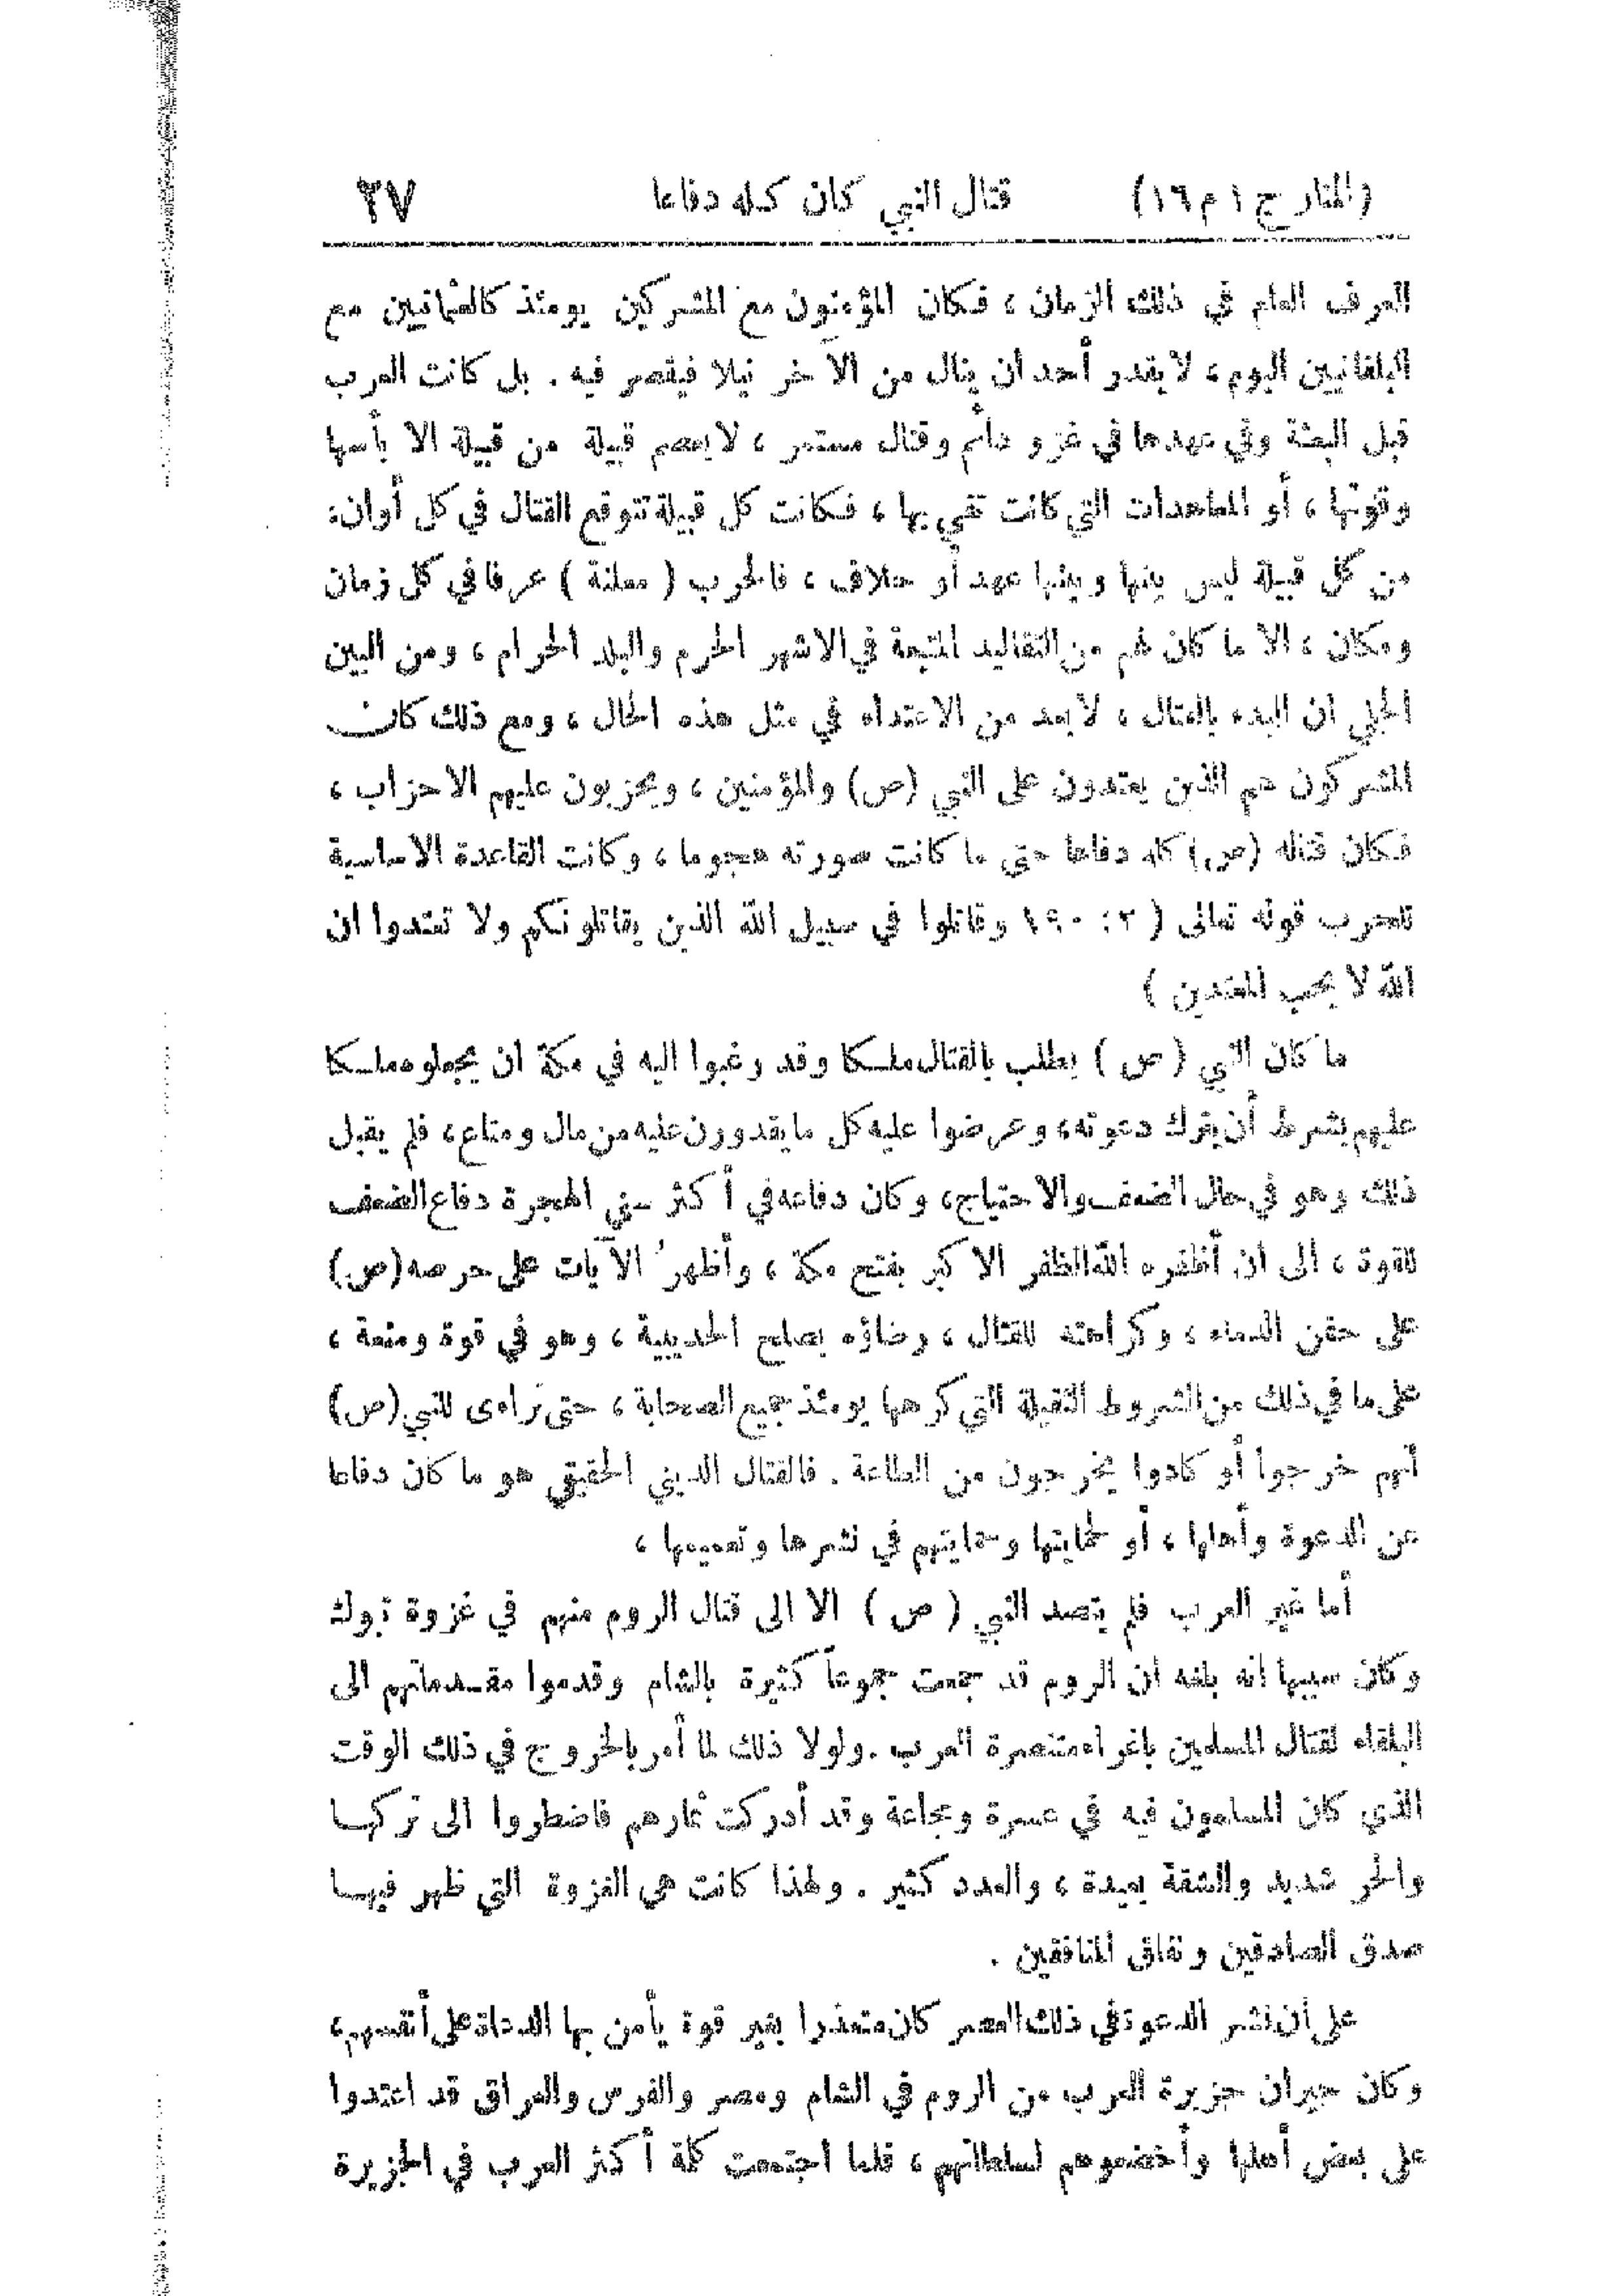 (المنار ج ١ م ١٦) قتال النبي كان كله دفاعا ٢٧
العرف العام في ذلك الزمان ، فكان المؤمنون مع المشركين يومئذ كالعثمانيين مع
البلقانيين اليوم ، لا يقدر أحد ان ينال من الآخر نيلا فيقصر فيه . بل كانت العرب
قبل البعثة وفي عهدها في غزو دائم وقتال مستمر ، لا يعصم قبيلة من قبيلة الا بأسها
وقوتها ، أو المعاهدات التي كانت تفي بها ، فكانت كل قبيلة تتوقع القتال في كل أوان :
من كل قبيلة ليس بينها وبينها عهد أو حلاف ، فالحرب ( معلنة ) عرفا في كل زمان
ومكان ، الا ما كان لهم من التقاليد المتبعة في الاشهر الحرم والبلد الحرام ، ومن البين
الجلي ان البدء بالقتال ، لا يعد من الاعتداء في مثل هذه الحال ، ومع ذلك كان
المشركون هم الذين يعتدون على النبي (ص) والمؤمنين ، ويحزبون عليهم الاحزاب ،
فكان قتاله (ص) كله دفاعا حتى ما كانت صورته هجوما ، وكانت القاعدة الاساسية
للحرب قوله تعالى ( ٢ : ١٩٠ وقاتلوا في سبيل الله الذين يقاتلونكم ولا تعتدوا ان
الله لا يحب المعتدين )
ما كان النبي ( ص ) يطلب بالقتال ملكا وقد رغبوا اليه في مكة ان يجعلوه ملكا
عليهم بشرط أن يترك دعوته ، وعرضوا عليه كل ما يقدورن عليه من مال ومتاع ، فلم يقبل
ذلك وهو في حال الضعف والاحتياج ، وكان دفاعه في أكثر سني الهجرة دفاع الضعف
للقوة ، الى ان أظفره الله الظفر الاكبر بفتح مكة ، وأظهر الآيات على حرصه (ص)
على حقن الدماء ، وكراهته للقتال ، رضاؤه بصلح الحديبية ، وهو في قوة ومنعة ،
على ما في ذلك من الشروط الثقيلة التي كرهها يومئذ جميع الصحابة ، حتى تراءى للنبي (ص)
أنهم خرجوا أو كادوا يخرجون من الطاعة . فالقتال الديني الحقيقي هو ما كان دفاعا
عن الدعوة وأهلها ، أو لحمايتها وحمايتهم في نشرها وتعميمها ،
أما غير العرب فلم يتصد النبي ( ص ) الا الى قتال الروم منهم في غزوة تبوك
وكان سببها انه بلغه ان الروم قد جمعت جموعاً كثيرة بالشام وقدموا مقدماتهم الى
البلقاء لقتال المسلمين باغراء متنصرة العرب . ولولا ذلك لما أمر بالخروج في ذلك الوقت
الذي كان المسلمون فيه في عسرة ومجاعة وقد أدركت ثمارهم فاضطروا الى تركها
والحر شديد والشقة بعيدة ، والعدد كثير . ولهذا كانت هي الغزوة التي ظهر فيها
صدق الصادقين ونفاق المنافقين .
على أن نشر الدعوة في ذلك العصر كان متعذرا بغير قوة يأمن بها الدعاة على أنفسهم ،
وكان جيران جزيرة العرب من الروم في الشام ومصر والفرس والعراق قد اعتدوا
على بعض أهلها وأخضعوهم لسلطانهم ، فلما اجتمعت كلمة أكثر العرب في الجزيرة